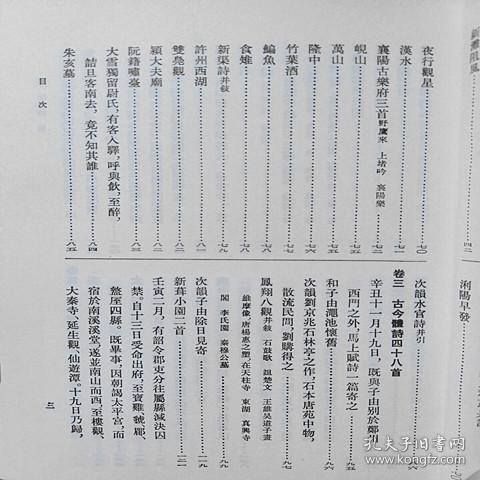 新灘阻風……四二
浰陽早發
夜行觀星……七〇
漢水……七一
襄陽古樂府三首 野鷹來 上堵吟 襄陽樂
峴山……七五
萬山……七五
隆中……七六
竹葉酒……七七
鯿魚……七八
食雉……七八
新渠詩并敍……七九
許州西湖……八一
雙鳧觀……八二
潁大夫廟……八二
阮籍嘯臺……八三
大雪獨留尉氏，有客入驛，呼與飲，至醉，
詰旦客南去，竟不知其誰……八四
朱亥墓……八五
次韻水官詩并引……八六
卷三 古今體詩四十八首
辛丑十一月十九日，既與子由別於鄭州
西門之外，馬上賦詩一篇寄之……九五
和子由澠池懷舊……九六
次韻劉京兆石林亭之作，石本唐苑中物，
散流民間，劉購得之……九七
鳳翔八觀并敍 石鼓歌 詛楚文 王維吳道子畫
維摩像，唐楊惠之塑，在天柱寺 東湖 真興寺
閣 李氏園 秦穆公墓……九九
次韻子由除日見寄……一一九
新葺小園二首……一二一
壬寅二月，有詔令郡吏分往屬縣減決囚
禁。自十三日受命出府，至寶雞、虢、郿、
盩厔四縣。既畢事，因朝謁太平宮，而
宿於南溪溪堂，遂並南山而西，至樓觀、
大秦寺、延生觀、仙遊潭。十九日乃歸，
目次
三
孔夫子旧书网